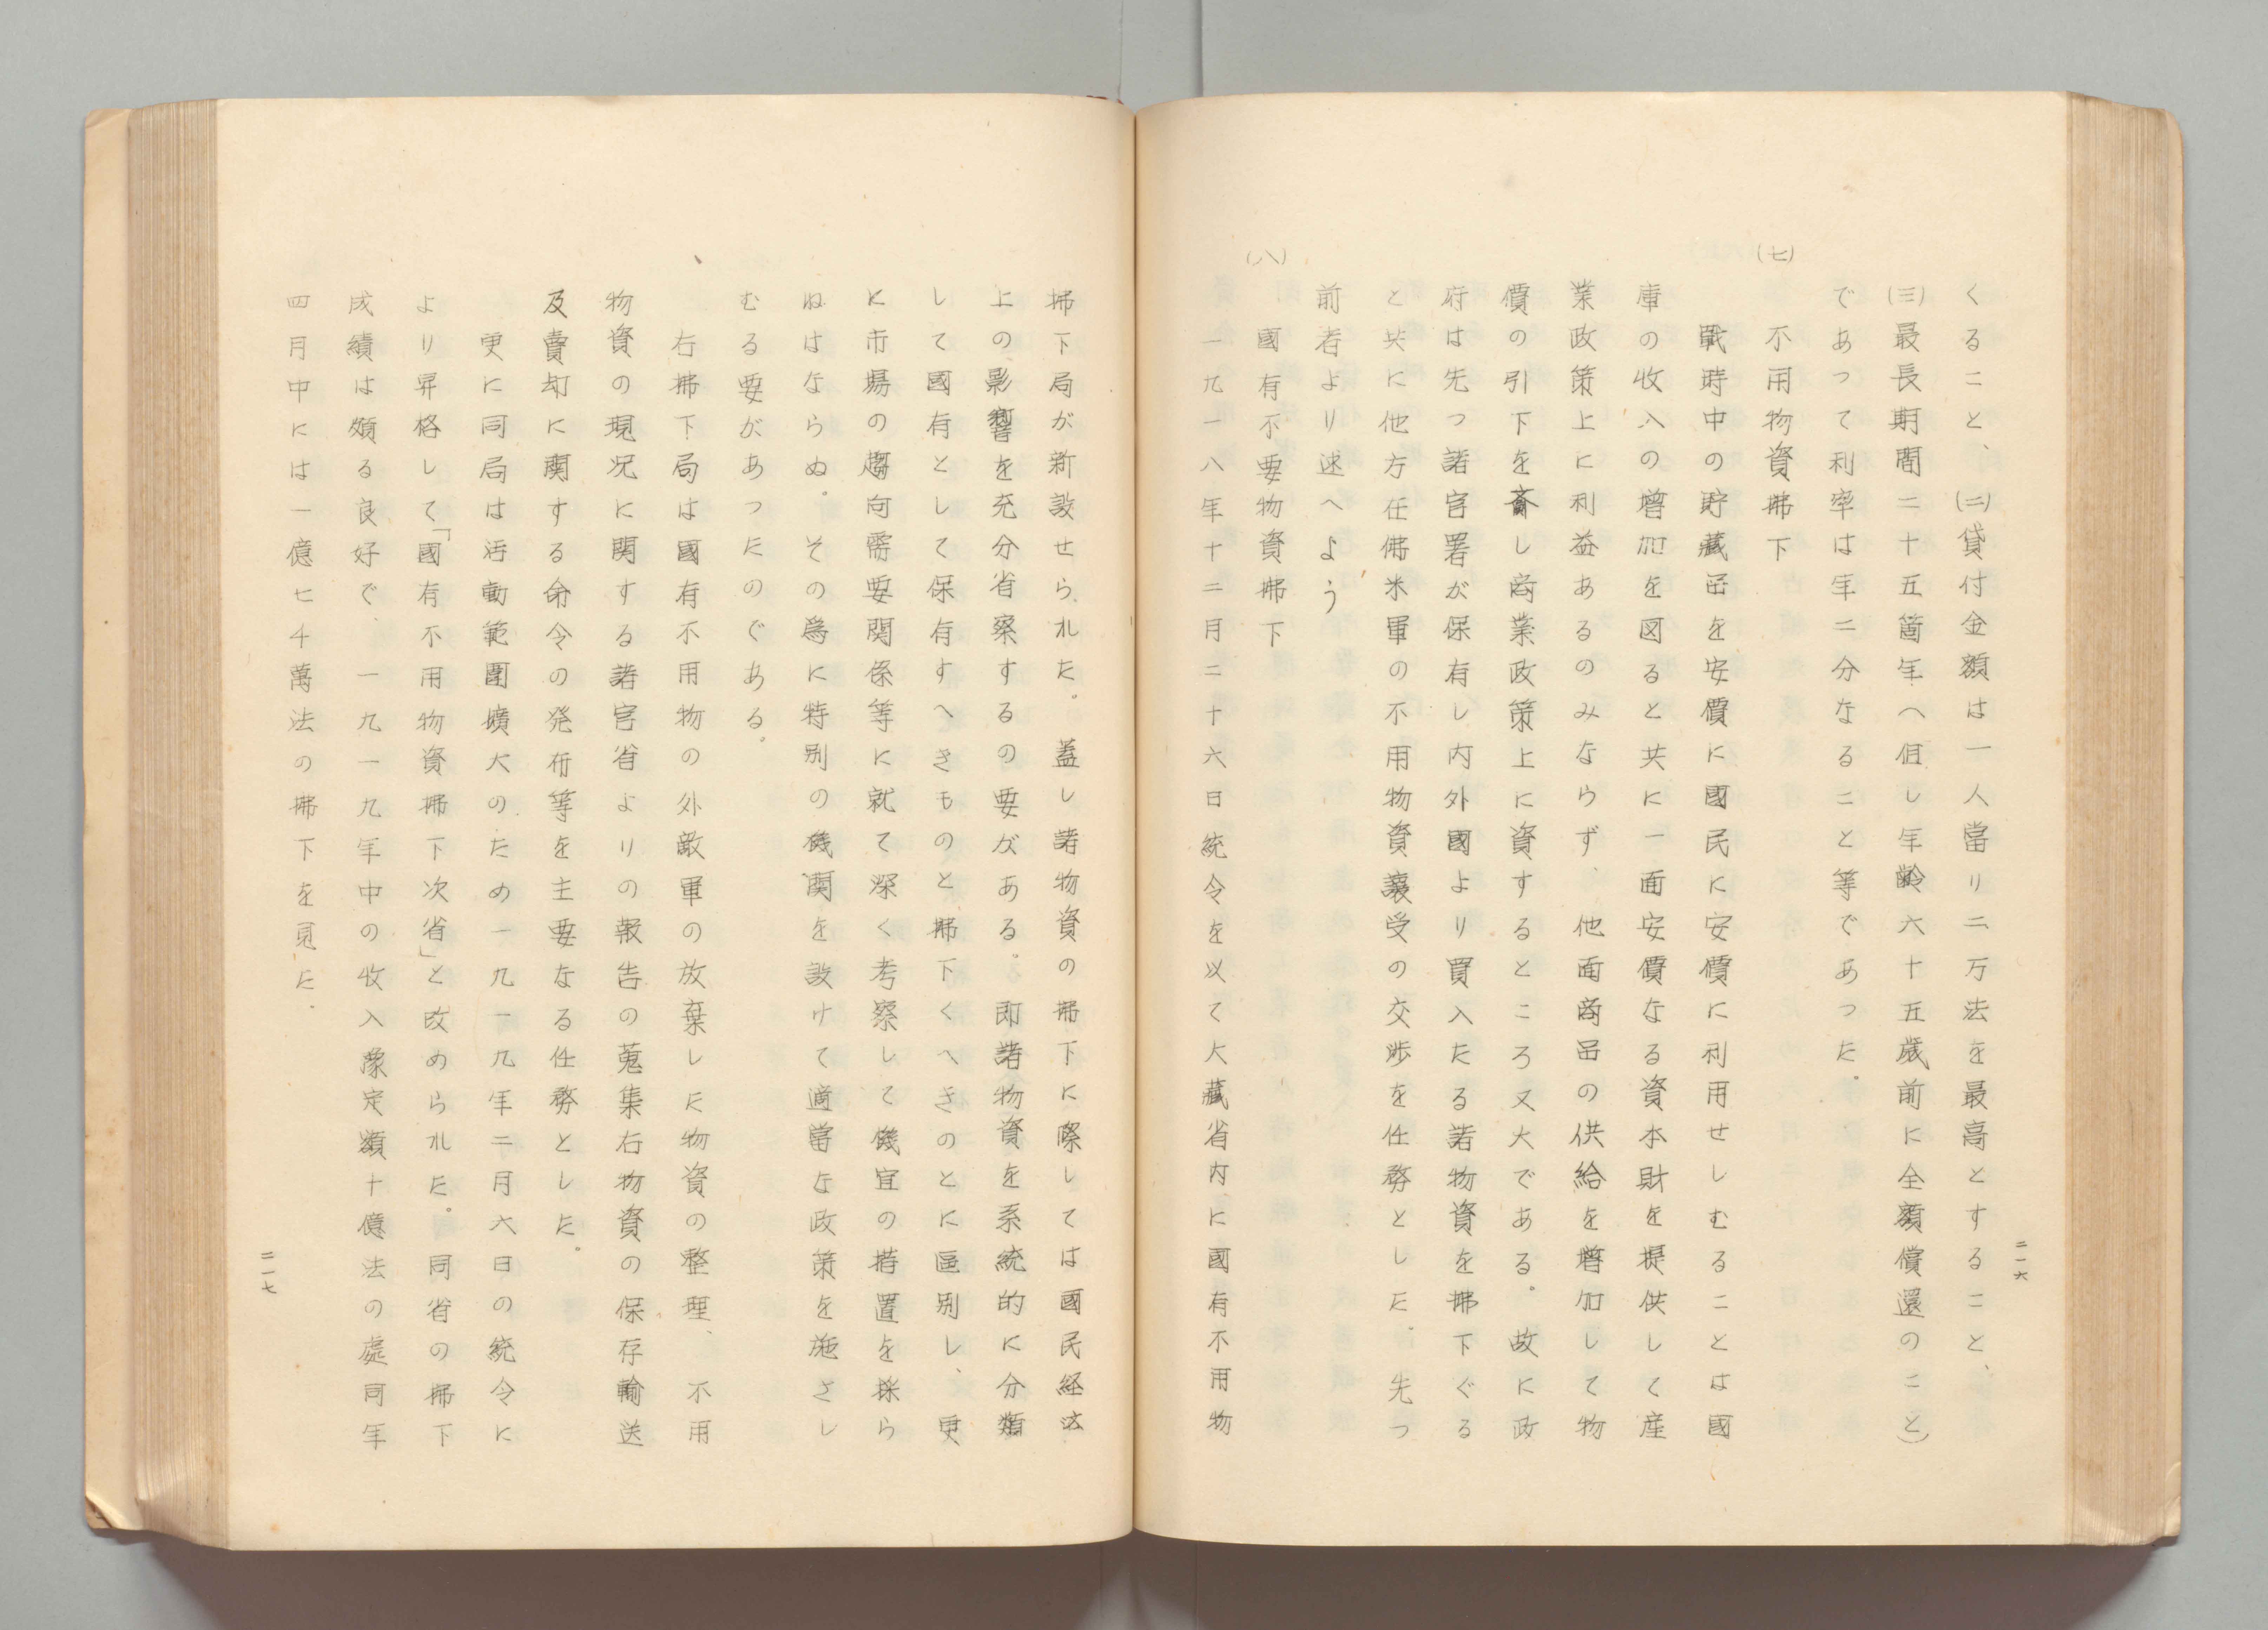 くること、(二)貸付金額は一人當り二万法を最高とすること、
(三)最長期間二十五箇年(但し年齢六十五歳前に全額償還のこと)
であって利率は年二分なること等であった。
(七)
不用物資拂下
戰時中の貯藏品を安價に國民に安價に利用せしむることは國
庫の收入の増加を図ると共に一面安價なる資本財を提供して産
業政策上に利益あるのみならず、他面商品の供給を増加して物
價の引下を齎し商業政策上に資するところ又大である。故に政
府は先つ諸官署が保有し内外國より買入たる諸物資を拂下ぐる
と共に他方在佛米軍の不用物資讓受の交渉を任務とした。先つ
前者より述へよう
(八)
國有不要物資拂下
一九一八年十二月二十六日統令を以て大藏省内に國有不用物
二一六
拂下局が新設せられた。蓋し諸物資の拂下に際しては國民経済
上の影響を充分省察するの要がある。即諸物資を系統的に分類
して國有として保有すへきものと拂下くへきのとに區別し、更
に市場の趨向需要関係等に就て深く考察して機宜の措置を採ら
ねはならぬ。その為に特別の機関を設けて適當な政策を施さし
むる要があつたのである。
右拂下局は國有不用物の外敵軍の放棄した物資の整理、不用
物資の現況に関する諸官省よりの報告の蒐集右物資の保存輸送
及賣却に関する命令の発布等を主要なる任務とした。
更に同局は活動範圍擴大のため一九一九年二月六日の統令に
より昇格して「國有不用物資拂下次省」と改められた。同省の拂下
成績は頗る良好で、一九一九年中の收入豫定額十億法の處同年
四月中には一億七千萬法の拂下を見た。
二一七